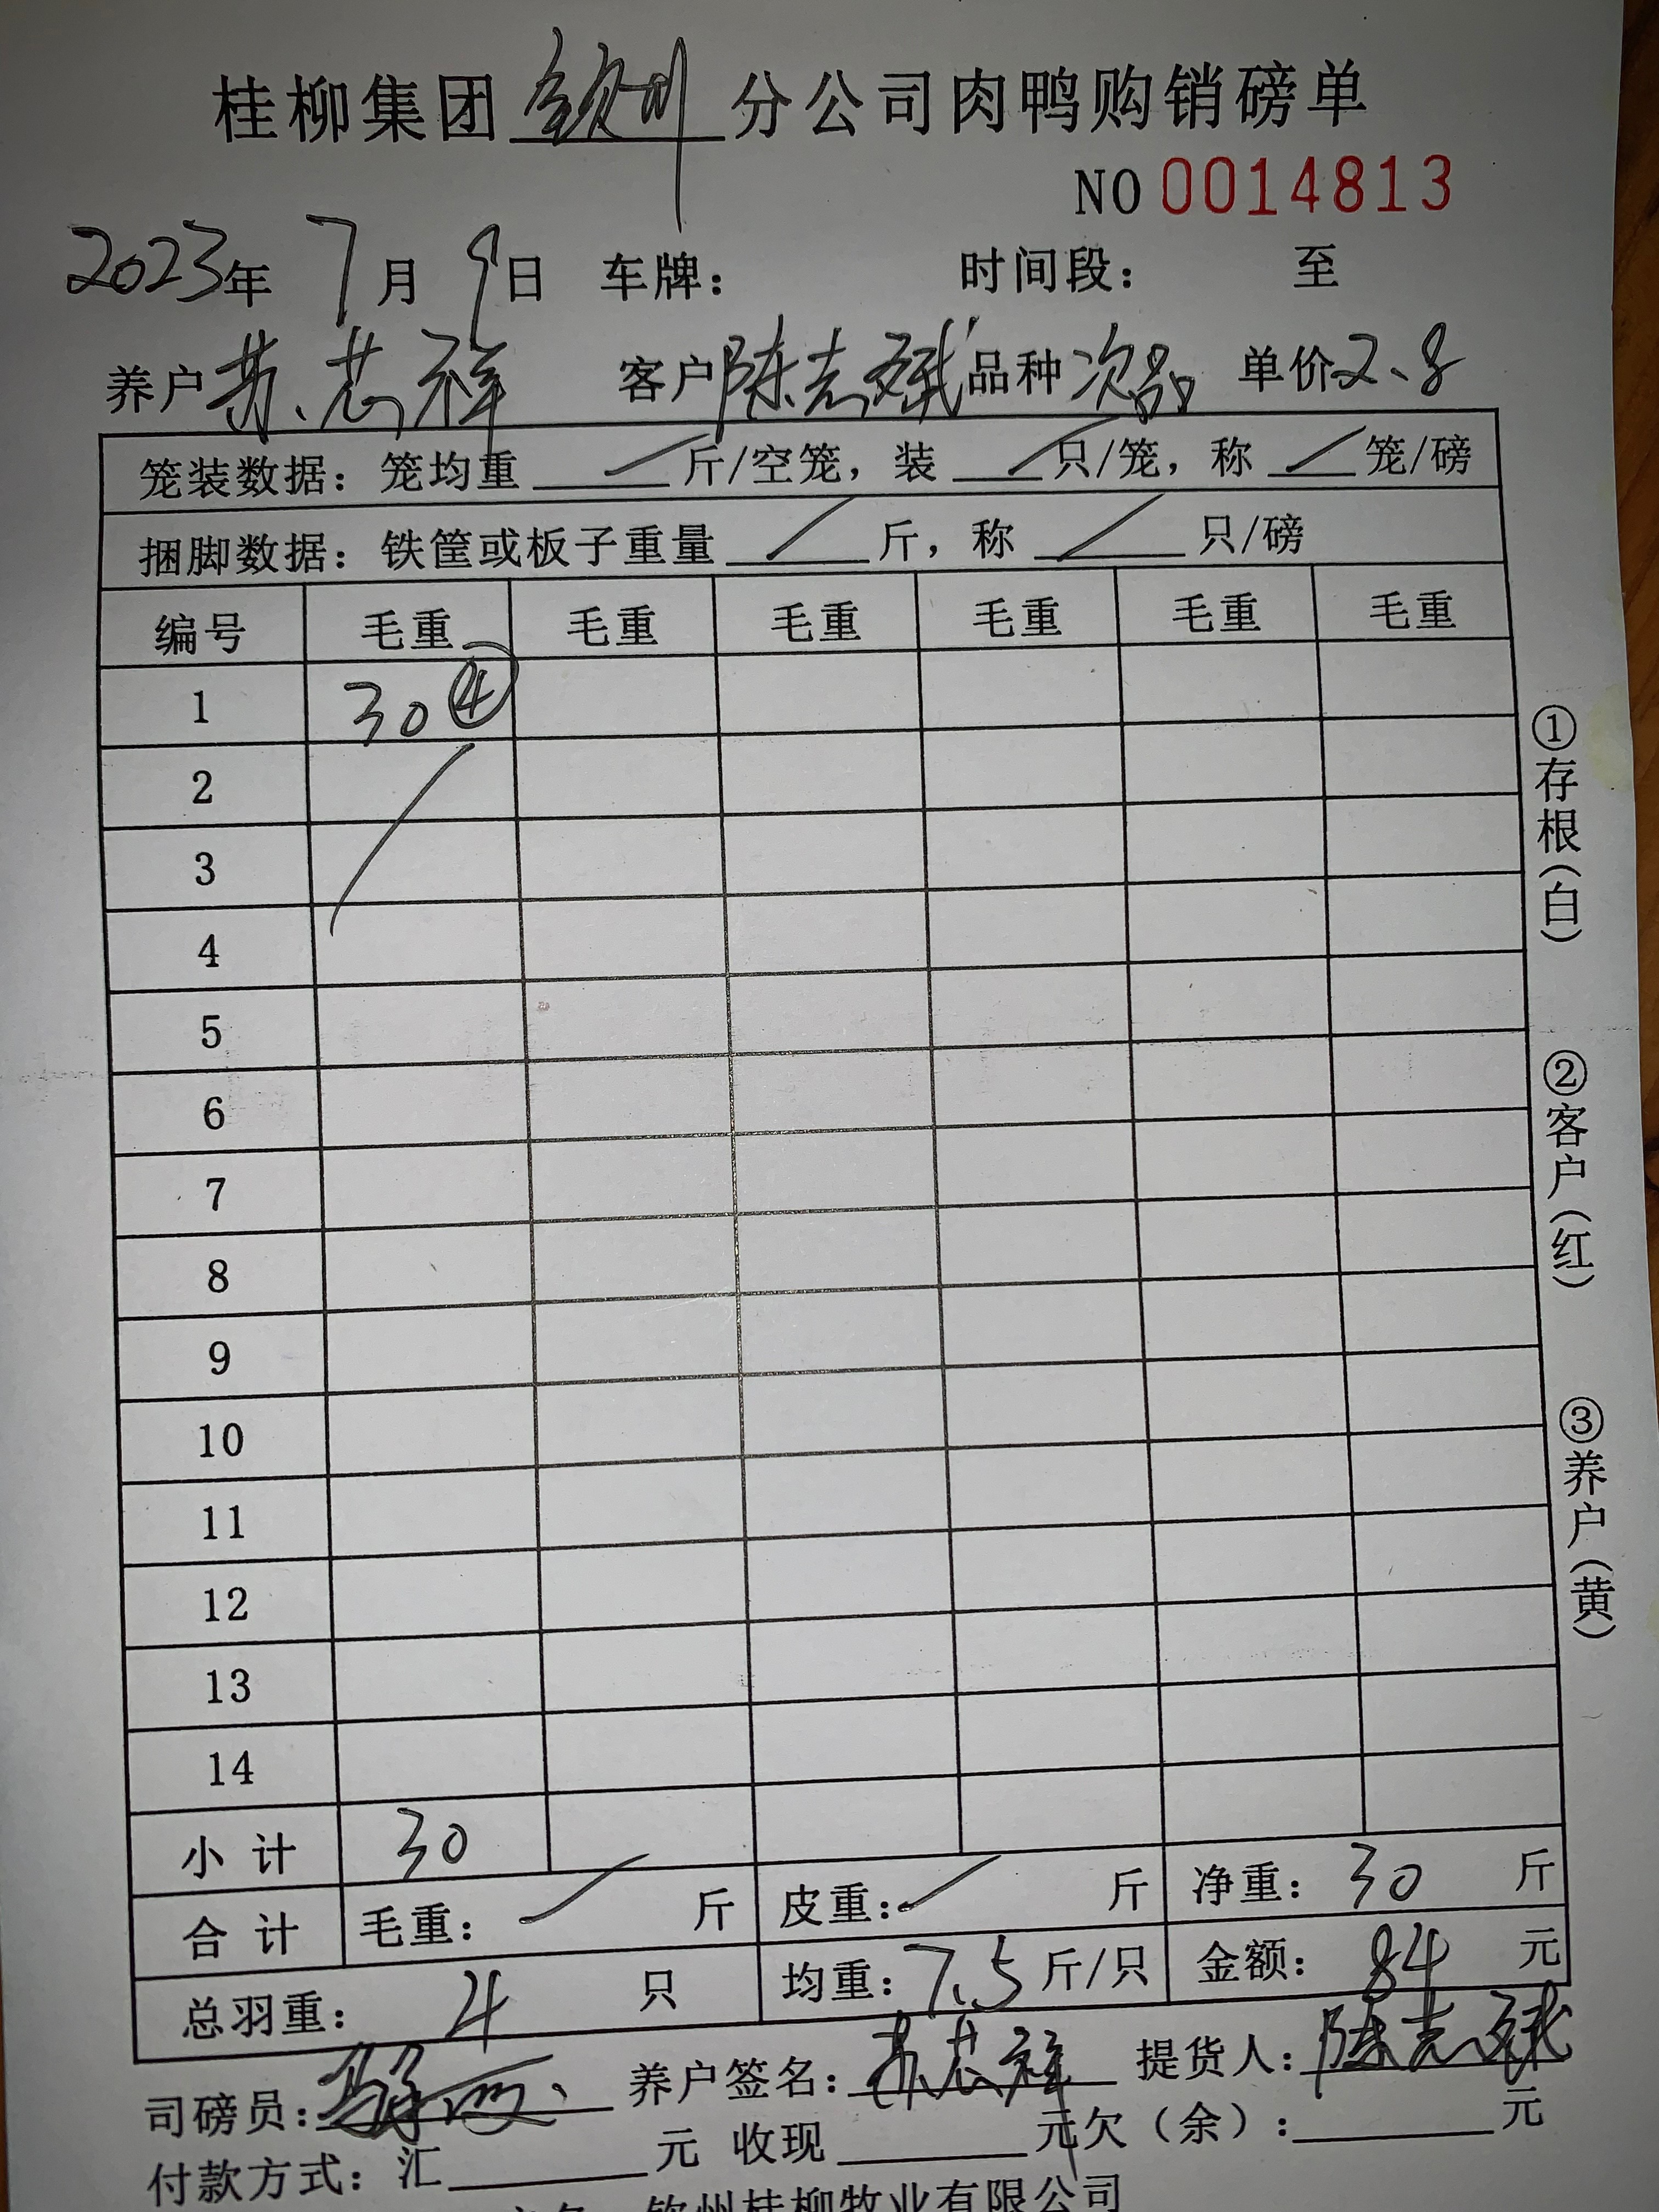 桂柳集团钦州分公司肉鸭购销磅单
NO 0014813
2023年 7月 9日 车牌: 时间段: 至
养户 苏芯祥 客户 陈志斌 品种 次品 单价 2.8
笼装数据: 笼均重 / 斤/空笼, 装 / 只/笼, 称 / 笼/磅
捆脚数据: 铁筐或板子重量 / 斤, 称 / 只/磅
编号 毛重 毛重 毛重 毛重 毛重 毛重
1 30 ④
2
3
4
5
6
7
8
9
10
11
12
13
14
小计 30
合计 毛重: / 斤 皮重: / 斤 净重: 30 斤
总羽重: 4 只 均重: 7.5 斤/只 金额: 84 元
司磅员: 养户签名: 苏芯祥 提货人: 陈志斌
付款方式: 汇 元 收现 元 欠(余): 元
钦州桂柳牧业有限公司
①存根(白)
②客户(红)
③养户(黄)